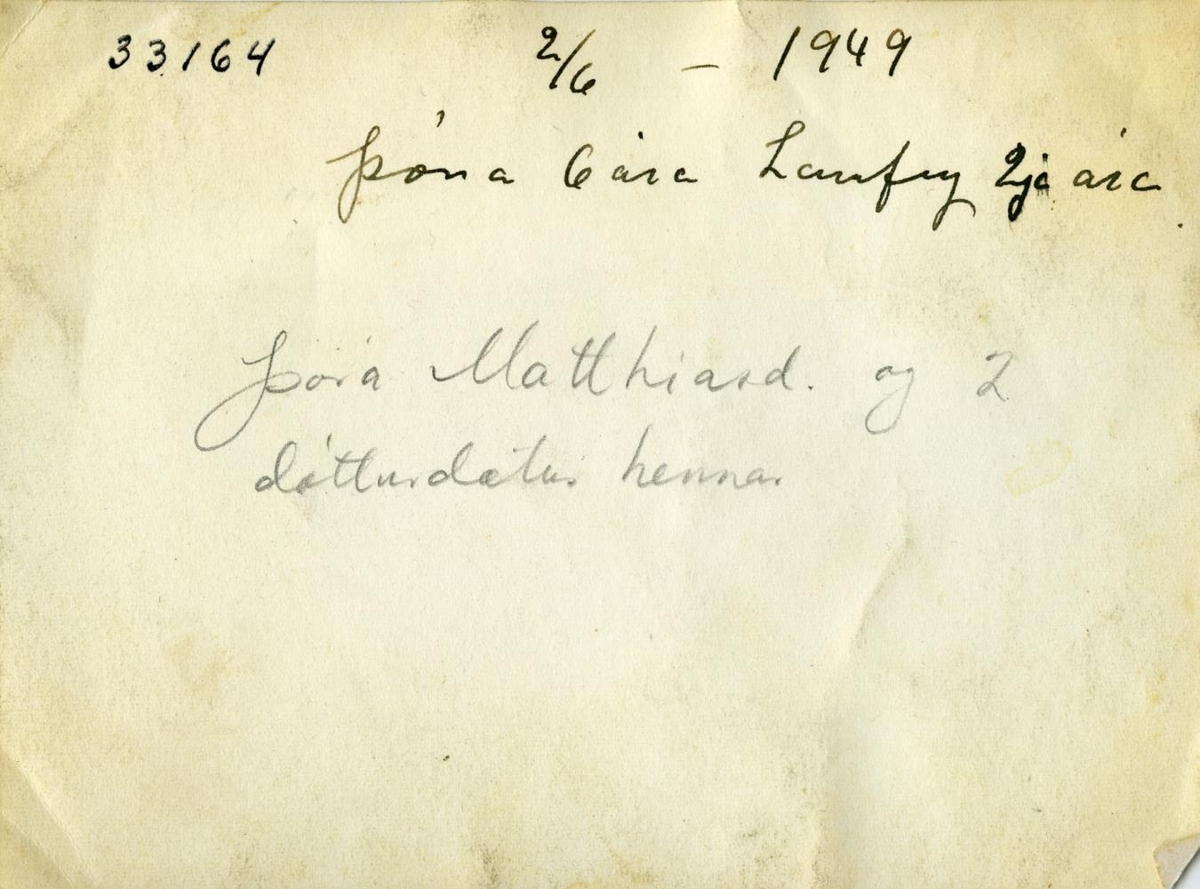 33164 2/6 - 1949
Þóra 6 ára Laufey 2ja ára
Þóra Matthiasd. og 2
dótturdætur hennar